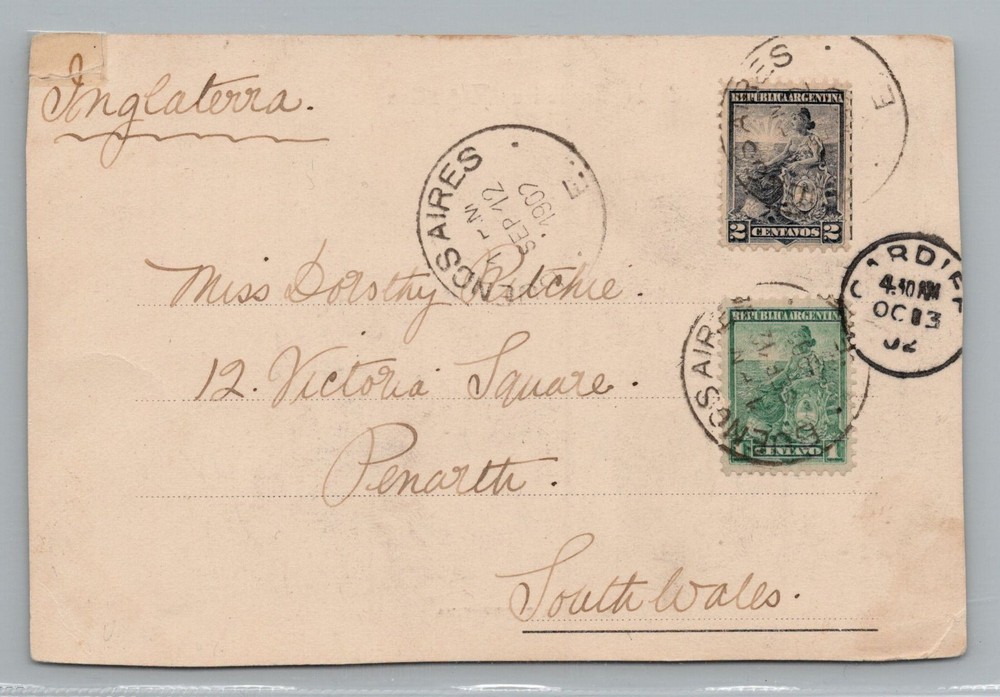 Inglaterra.
BUENOS AIRES
SEP 12
1902
E
AIRES
E
REPUBLICA ARGENTINA
2 CENTAVOS 2
CARDIFF
4.30 AM
OC 13
02
Miss Dorothy Ritchie.
12. Victoria Square.
Penarth.
South Wales.
BUENOS AIRES
REPUBLICA ARGENTINA
1 CENTAVO 1